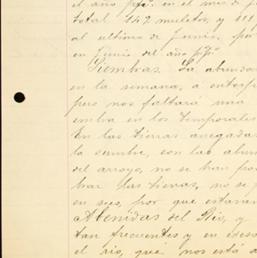 el año ppº. en el mes de
total 142 muletos, y 111
al ultimo de Junio,
en Junio del año ppº.
Siembras. La abundan
en la semana, a enterpe
pero nos faltará una
emba en los temporales
En las tierras anegadas
la sembre, con las abun
del arroyo, no se han po
har las tierras, no se p
en seys, por que estaran
Avenidas del Rio, y
tan frecuentes y en
el rio, que nos está a